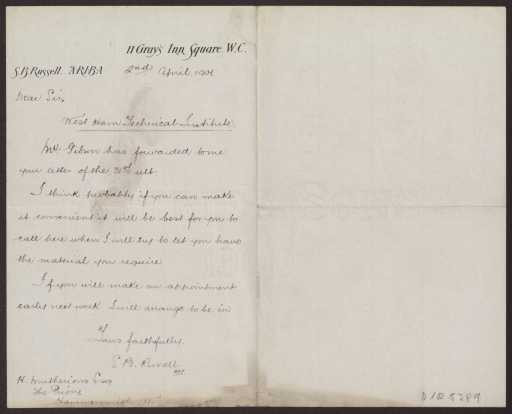 11 Gray's Inn Square. W.C.
S.B. Russell. A.R.I.B.A
2nd April
Dear Sir,
West Ham Technical Institute.
Mr Gibson has forwarded to me
your letter of the 31st ult.
I think probably if you can make
it convenient it will be best for you to
call here when I will try to let you have
the material you require
If you will make an appointment
early next week I will arrange to be in
Yours faithfully,
S. B. Russell
H. Esq
The